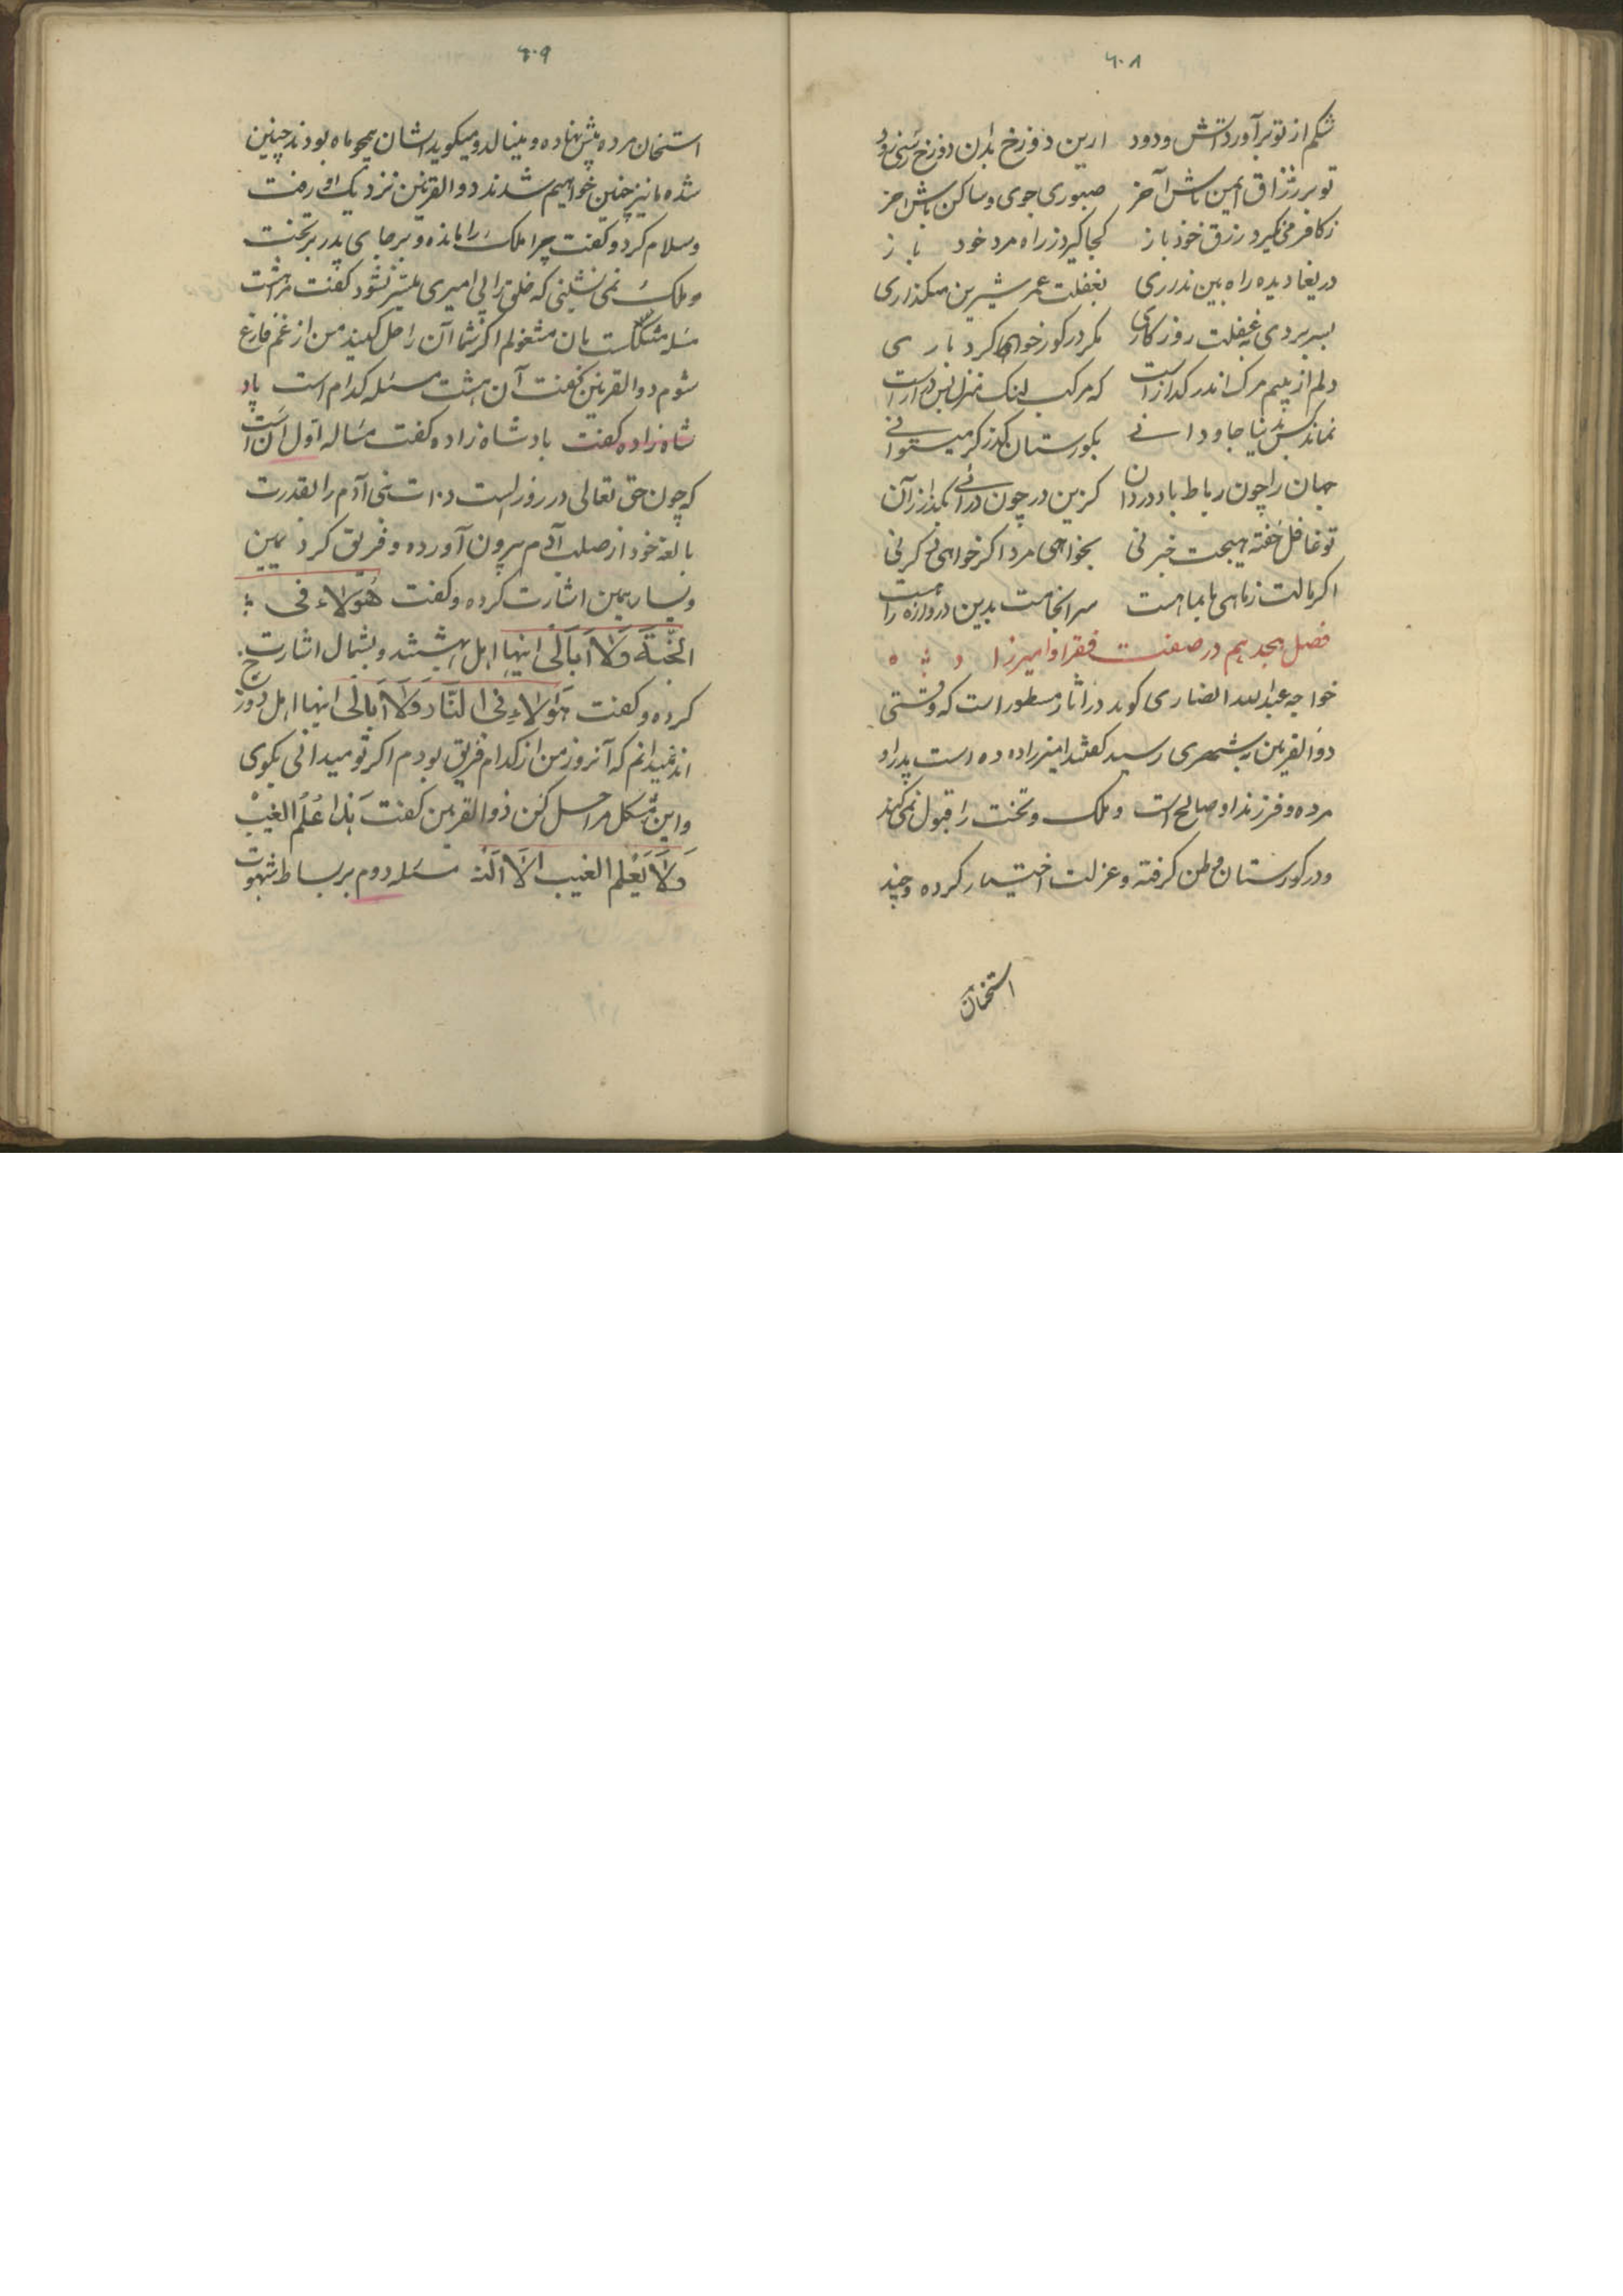 ۶۰۸
شکم از تو برآورد آتش و دود ازین دوزخ بدان دوزخ رسی زود
تو بر رزاق ایمن باش آخر صبوری جوی و ساکن باش آخر
ز کافر می نگیرد رزق خود باز کجا گیرد ز راه مرد خود باز
دریغا دیده راه بین نداری بغفلت عمر شیرین میگذاری
بسر بردی بغفلت روزگاری مگر در گور خواهی کرد باری
دلم از بیم مرگ اندر گدازست که مرکب لنگ منزل بس درازاست
نماند کس بدنیا جاودانی بگورستان گذر کر میتوانی
جهان را چون رباط با دو در دان کزین در چون درائی بگذر از آن
تو غافل خفته هیچت خبر نی بخواهی مرد اگر خواهی و گر نی
اگر مالت ز ماهی تا بماهست سرانجامت بدین دروازه راهست
فصل هجدهم در صفت فقرا و امیرزا ده
خواجه عبدالله انصاری کوید در آثار مسطور است که وقتی
ذوالقرنین بشهری رسید کفتند امیرزاده ده است پدر او
مرده و فرزند او صالح است و ملک و تخت را قبول نمی کند
و در کورستان وطن کرفته و عزلت اختیار کرده و چند
استخوان
۶۰۹
استخوان مرده پیش نهاده و مینالد و میکوید ایشان همچو ما بودند چنین
شده ما نیز چنین خواهیم شد ذوالقرنین نزدیک او رفت
و سلام کرد و کفت چرا ملک را مانده و بر جای پدر بر تخت
و ملک نمی نشینی که خلق را بی امیری میسر نشود کفت مرا هشت
مسله مشکلست بان مشغولم اکر شما آن را حل کنید من از غم فارغ
شوم ذوالقرنین کفت آن هشت مسئله کدام است پاد
شاه زاده کفت بادشاه زاده کفت مساله اول آن است
که چون حق تعالی در روز الست ذرات بنی آدم را بقدرت
بالغه خود از صلب آدم بیرون آورده و فریق کرد یمین
و یسار بیمین اشارت کرده و کفت هٰؤلاء فی
الجَنّة وَلاَ اُبَالی اینها اهل بهشتند و بشمال اشارت
کرده و کفت هٰؤلاءِ فی النّار وَلاَ اُبالی اینها اهل دوزخ
اند نمیدانم که آنروز من از کدام فریق بودم اکر تو میدانی بکوی
و این مشکل مرا حل کن ذوالقرنین کفت هَذا عِلْم الغیبْ
وَلاَ یَعْلم الغیب اِلاّ اللّه مسئله دوم بر بساط شهوت